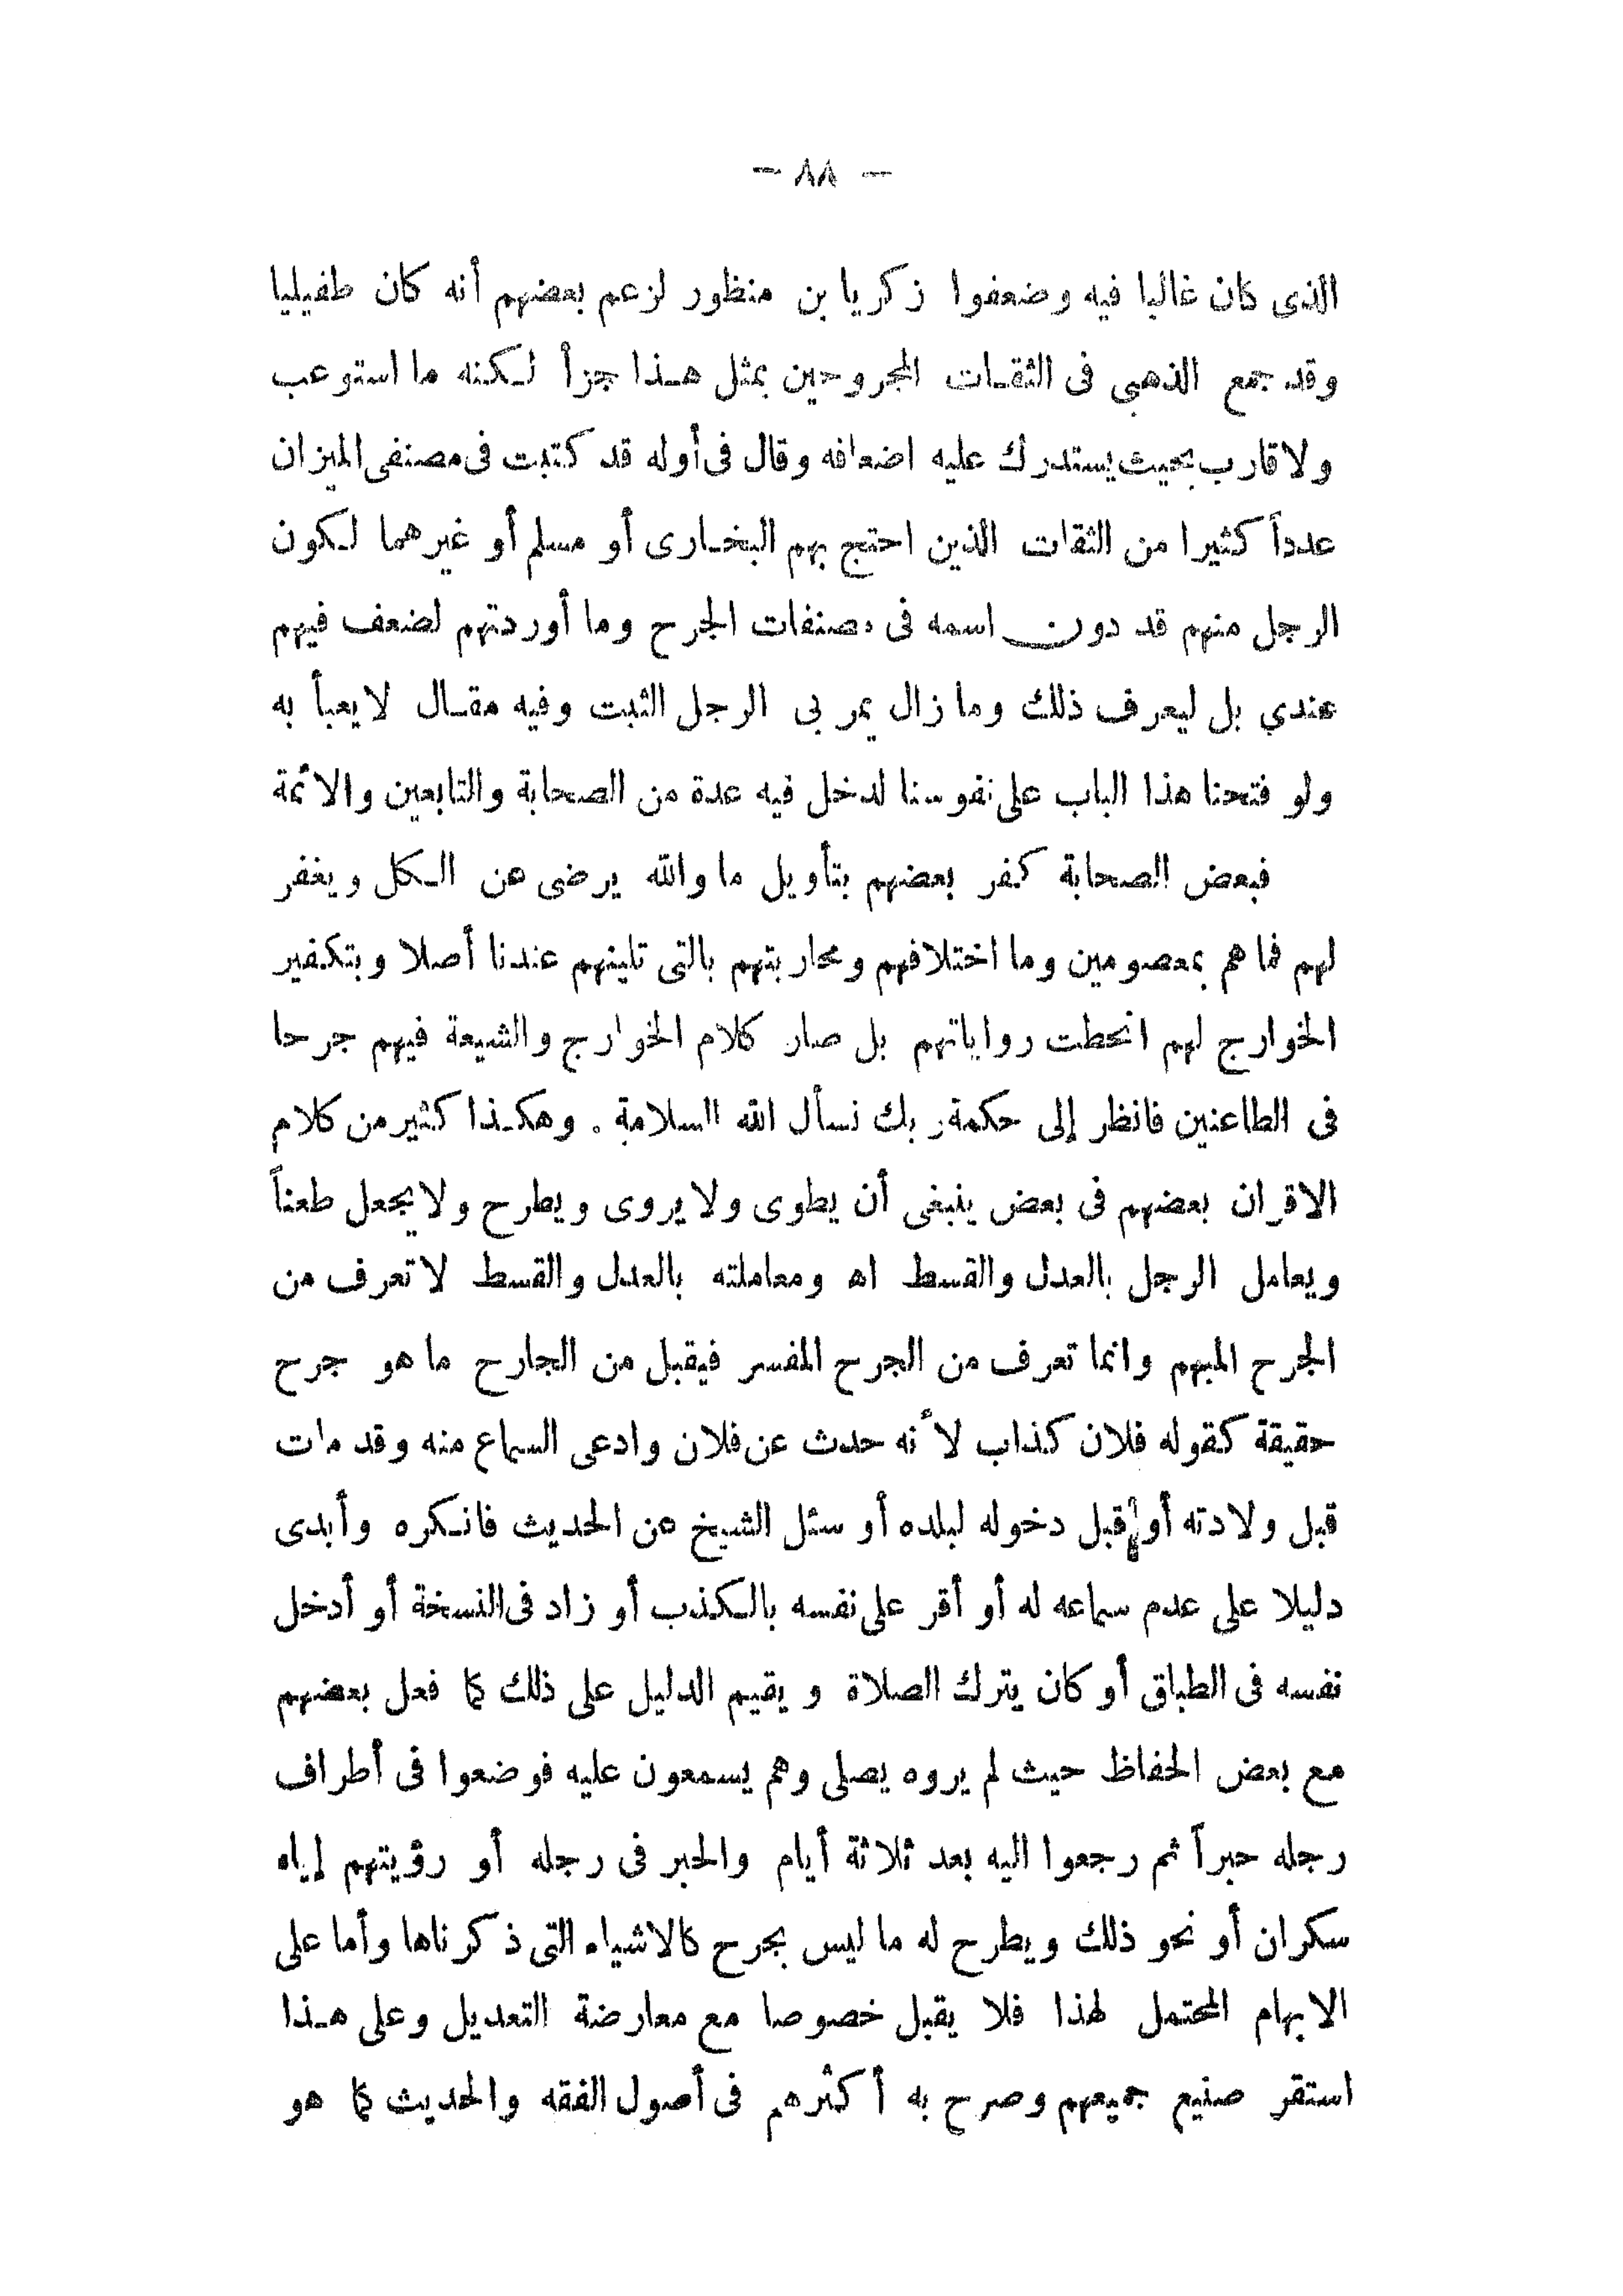 — ٨٨ —
الذى كان غالبا فيه وضعفوا زكريا بن منظور لزعم بعضهم أنه كان طفيليا
وقد جمع الذهبى فى الثقات المجروحين بمثل هذا جزأ لكنه ما استوعب
ولا قارب بحيث يستدرك عليه اضعافه وقال فى أوله قد كتبت فى مصنفى الميزان
عدداً كثيرا من الثقات الذين احتج بهم البخارى أو مسلم أو غيرهما لكون
الرجل منهم قد دون اسمه فى مصنفات الجرح وما أوردتهم لضعف فيهم
عندي بل ليعرف ذلك وما زال يمر بى الرجل الثبت وفيه مقال لا يعبأ به
ولو فتحنا هذا الباب على نفوسنا لدخل فيه عدة من الصحابة والتابعين والائمة
فبعض الصحابة كفر بعضهم بتأويل ما والله يرضى عن الكل ويغفر
لهم فما هم بمعصومين وما اختلافهم ومحاربتهم بالتى تلينهم عندنا أصلا وبتكفير
الخوارج لهم انحطت رواياتهم بل صار كلام الخوارج والشيعة فيهم جرحا
فى الطاعنين فانظر إلى حكمة ربك نسأل الله السلامة . وهكذا كثير من كلام
الاقران بعضهم فى بعض ينبغى أن يطوى ولا يروى ويطرح ولا يجعل طعناً
ويعامل الرجل بالعدل والقسط اه ومعاملته بالعدل والقسط لا تعرف من
الجرح المبهم وانما تعرف من الجرح المفسر فيقبل من الجارح ما هو جرح
حقيقة كقوله فلان كذاب لأنه حدث عن فلان وادعى السماع منه وقد مات
قبل ولادته أو قبل دخوله لبلده أو سئل الشيخ عن الحديث فانكره وأبدى
دليلا على عدم سماعه له أو أقر على نفسه بالكذب أو زاد فى النسخة أو أدخل
نفسه فى الطباق أو كان يترك الصلاة ويقيم الدليل على ذلك كما فعل بعضهم
مع بعض الحفاظ حيث لم يروه يصلى وهم يسمعون عليه فوضعوا فى أطراف
رجله حبراً ثم رجعوا اليه بعد ثلاثة أيام والحبر فى رجله أو رؤيتهم إياه
سكران أو نحو ذلك ويطرح له ما ليس بجرح كالاشياء التى ذكرناها وأما على
الابهام المحتمل لهذا فلا يقبل خصوصا مع معارضة التعديل وعلى هذا
استقر صنيع جميعهم وصرح به أكثرهم فى أصول الفقه والحديث كما هو